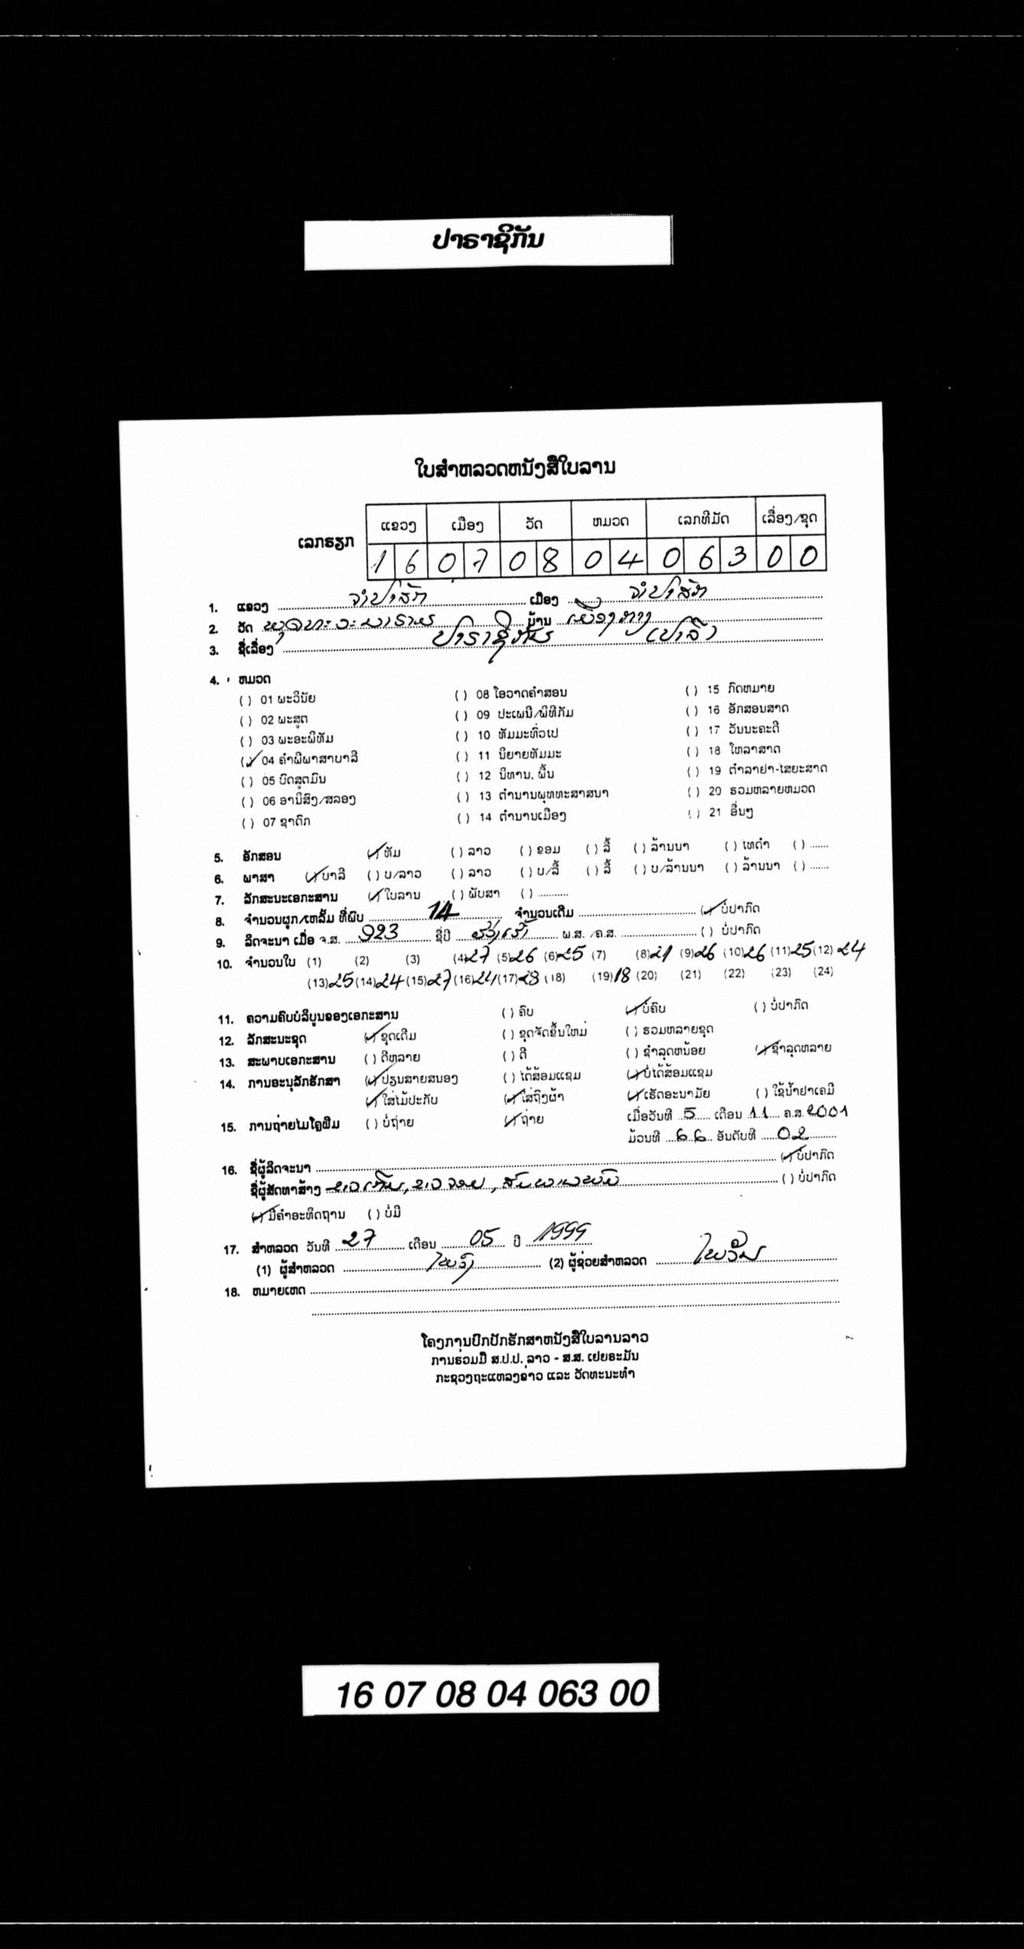 ປາຣາຊິກັນ
ໃບສຳຫລວດຫນັງສືໃບລານ
ແຂວງ ເມືອງ ວັດ ຫມວດ ເລກທີມັດ ເລື່ອງ/ຊຸດ
ເລກຮຽກ 1 6 0 7 0 8 0 4 0 6 3 0 0
1. ແຂວງ ຈຳປາສັກ ເມືອງ ຈຳປາສັກ
2. ວັດ ບ້ານ
3. ຊື່ເລື່ອງ ປາຣາຊິກັນ
4. ຫມວດ
( ) 01 ພະວິນັຍ ( ) 08 ໂອວາດຄຳສອນ ( ) 15 ກົດຫມາຍ
( ) 02 ພະສູດ ( ) 09 ປະເພນີ/ພິທີກັມ ( ) 16 ອັກສອນສາດ
( ) 03 ພະອະພິທັມ ( ) 10 ທັມມະທົ່ວໄປ ( ) 17 ວັນນະຄະດີ
(✓) 04 ຄຳພີພາສາບາລີ ( ) 11 ນິຍາຍທັມມະ ( ) 18 ໂຫລາສາດ
( ) 05 ບົດສູດມົນ ( ) 12 ນິທານ, ພື້ນ ( ) 19 ຕຳລາຢາ-ໄສຍະສາດ
( ) 06 ອານິສົງ/ສລອງ ( ) 13 ຕຳນານພຸທທະສາສນາ ( ) 20 ຮວມຫລາຍຫມວດ
( ) 07 ຊາດົກ ( ) 14 ຕຳນານເມືອງ ( ) 21 ອື່ນໆ
5. ອັກສອນ (✓) ທັມ ( ) ລາວ ( ) ຂອມ ( ) ລື້ ( ) ລ້ານນາ ( ) ໄທດຳ ( ) ......
6. ພາສາ (✓) ບາລີ ( ) ບ/ລາວ ( ) ລາວ ( ) ບ/ລື້ ( ) ລື້ ( ) ບ/ລ້ານນາ ( ) ລ້ານນາ ( ) ......
7. ລັກສະນະເອກະສານ (✓) ໃບລານ ( ) ພັບສາ ( ) ..........
8. ຈຳນວນຜູກ/ເຫລັ້ມ ທີ່ພົບ 14 ຈຳນວນເດີມ (✓) ບໍ່ປາກົດ
9. ລິດຈະນາ ເມື່ອ ຈ.ສ. 923 ຊື່ປີ ພ.ສ. /ຄ.ສ. ( ) ບໍ່ປາກົດ
10. ຈຳນວນໃບ (1) (2) (3) (4) 27 (5) 26 (6) 25 (7) (8) 21 (9) 26 (10) 26 (11) 25 (12) 24
(13) 25 (14) 24 (15) 27 (16) 24 (17) 28 (18) (19) 18 (20) (21) (22) (23) (24)
11. ຄວາມຄົບບໍລິບູນຂອງເອກະສານ ( ) ຄົບ (✓) ບໍ່ຄົບ ( ) ບໍ່ປາກົດ
12. ລັກສະນະຊຸດ (✓) ຊຸດເດີມ ( ) ຊຸດຈັດຂຶ້ນໃຫມ່ ( ) ຮວມຫລາຍຊຸດ
13. ສະພາບເອກະສານ ( ) ດີຫລາຍ ( ) ດີ ( ) ຊຳລຸດຫນ້ອຍ (✓) ຊຳລຸດຫລາຍ
14. ການອະນຸລັກຮັກສາ (✓) ປ່ຽນສາຍສນອງ ( ) ໄດ້ສ້ອມແຊມ (✓) ບໍ່ໄດ້ສ້ອມແຊມ
(✓) ໃສ່ໄມ້ປະກັບ (✓) ໃສ່ຖົງຜ້າ (✓) ເຮັດອະນາມັຍ ( ) ໃຊ້ນ້ຳຢາເຄມີ
15. ການຖ່າຍໄມໂຄຼຟີມ ( ) ບໍ່ຖ່າຍ (✓) ຖ່າຍ ເມື່ອວັນທີ 5 ເດືອນ 11 ຄ.ສ. 2001
ມ້ວນທີ 66 ອັນດັບທີ 02
16. ຊື່ຜູ້ລິດຈະນາ (✓) ບໍ່ປາກົດ
ຊື່ຜູ້ສັດທາສ້າງ ( ) ບໍ່ປາກົດ
(✓) ມີຄຳອະທິດຖານ ( ) ບໍ່ມີ
17. ສຳຫລວດ ວັນທີ 27 ເດືອນ 05 ປີ 1999
(1) ຜູ້ສຳຫລວດ (2) ຜູ້ຊ່ວຍສຳຫລວດ
18. ຫມາຍເຫດ
ໂຄງການປົກປັກຮັກສາຫນັງສືໃບລານລາວ
ການຮ່ວມມື ສ.ປ.ປ. ລາວ - ສ.ສ. ເຢຍຣະມັນ
ກະຊວງຖະແຫລງຂ່າວ ແລະ ວັດທະນະທຳ
16 07 08 04 063 00